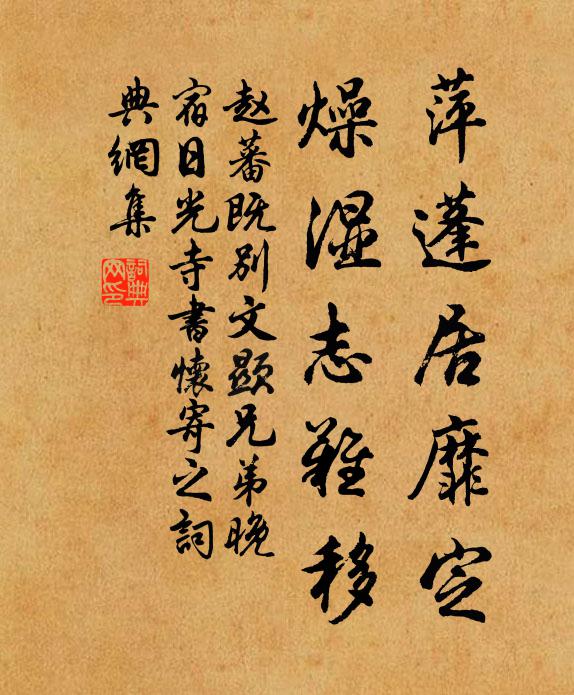 萍蓬居靡定
燥湿志难移
赵蕃既别文显兄弟晚
宿日光寺书怀寄之词
典网集
词典网印